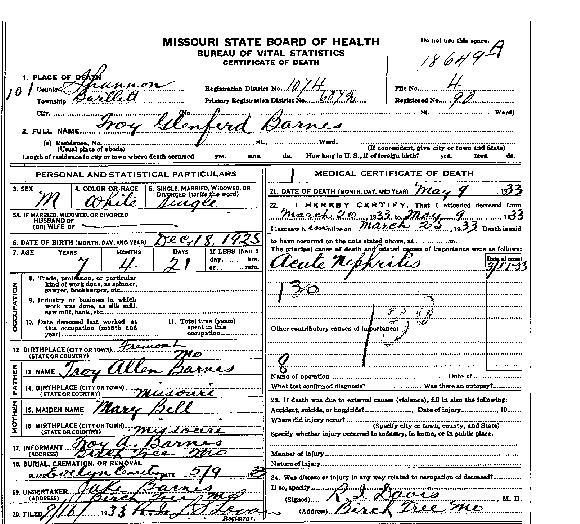 Do not use this space.
MISSOURI STATE BOARD OF HEALTH
BUREAU OF VITAL STATISTICS
CERTIFICATE OF DEATH
18649A
1. PLACE OF DEATH
County Shannon Registration District No. 1074 File No. 4
Township Bartlett Primary Registration District No. Registered No. 90
City No. St. Ward)
2. FULL NAME Troy Glenferd Barnes
(a) Residence, No. St. Ward.
(Usual place of abode) (If nonresident, give city or town and State)
Length of residence in city or town where death occurred yrs. mos. ds. How long in U. S., if of foreign birth? yrs. mos. ds.
PERSONAL AND STATISTICAL PARTICULARS
3. SEX M
4. COLOR OR RACE White
5. SINGLE, MARRIED, WIDOWED, OR DIVORCED (write the word) Single
5A. IF MARRIED, WIDOWED, OR DIVORCED
HUSBAND OF
(OR) WIFE OF
6. DATE OF BIRTH (MONTH, DAY, AND YEAR) Dec, 18, 1925
7. AGE YEARS MONTHS DAYS If LESS than 1
7 4 21 day, hrs.
or min.
OCCUPATION
8. Trade, profession, or particular
kind of work done, as spinner,
sawyer, bookkeeper, etc.
9. Industry or business in which
work was done, as silk mill,
saw mill, bank, etc.
10. Date deceased last worked at
this occupation (month and
year)
11. Total time (years)
spent in this
occupation
12. BIRTHPLACE (CITY OR TOWN) Fremont
(STATE OR COUNTRY) Mo
FATHER
13. NAME Troy Allen Barnes
14. BIRTHPLACE (CITY OR TOWN)
(STATE OR COUNTRY) Missouri
MOTHER
15. MAIDEN NAME Mary Bell
16. BIRTHPLACE (CITY OR TOWN)
(STATE OR COUNTRY) Missouri
17. INFORMANT Troy A. Barnes
(ADDRESS) Birch Tree Mo
18. BURIAL, CREMATION, OR REMOVAL
PLACE DATE 5/9
19. UNDERTAKER Jake Barnes
(ADDRESS) Birch Tree Mo
20. FILED 1933
Registrar.
MEDICAL CERTIFICATE OF DEATH
21. DATE OF DEATH (MONTH, DAY, AND YEAR) May 9 1933
22. I HEREBY CERTIFY, That I attended deceased from
March 20, 1933 to May 9, 1933
I last saw h alive on March 23, 1933 Death is said
to have occurred on the date stated above, at m.
The principal cause of death and related causes of importance were as follows:
Acute Nephritis
Date of onset
130
130
Other contributory causes of importance:
8
Name of operation Date of
What test confirmed diagnosis? Was there an autopsy?
23. If death was due to external causes (violence), fill in also the following:
Accident, suicide, or homicide? Date of injury 19
Where did injury occur?
(Specify city or town, county, and State)
Specify whether injury occurred in industry, in home, or in public place.
Manner of injury
Nature of injury
24. Was disease or injury in any way related to occupation of deceased?
If so, specify
(Signed) R. S. Davis M. D.
(Address) Birch Tree Mo